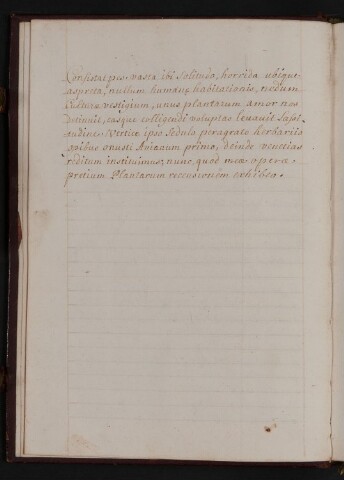 Consistat pes. vasta ibi Solitudo, horrida ubique
asperitas, nullum humanæ habitationis, nedum
Culturæ vestigium, unus plantarum amor nos
detinuit, easque colligendi voluptas levavit
Vertice ipso sedulo peragrato herbariis
opibus onusti primo, deinde venetias
reditum instituimus, nunc quod meæ operæ
pretium Plantarum recensionem exhibeo.